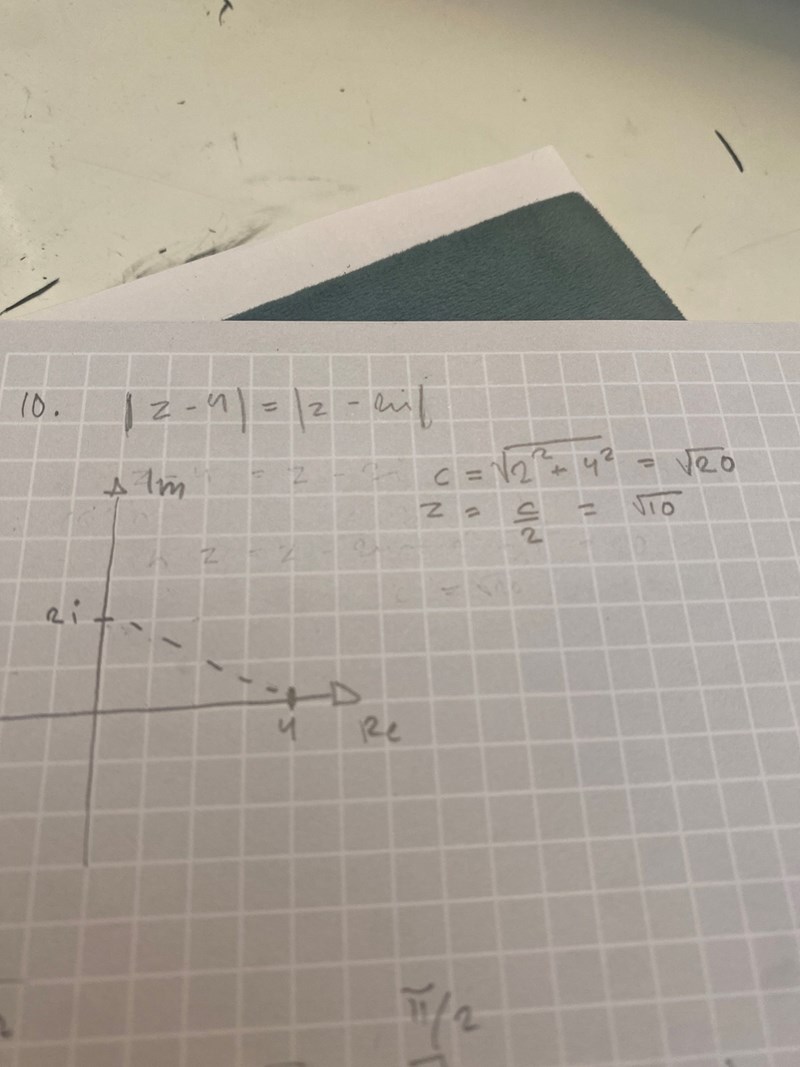 10. |z - 4| = |z - 2i|
Im
c = √2² + 4² = √20
z = c/2 = √10
2i
4 Re
π/2